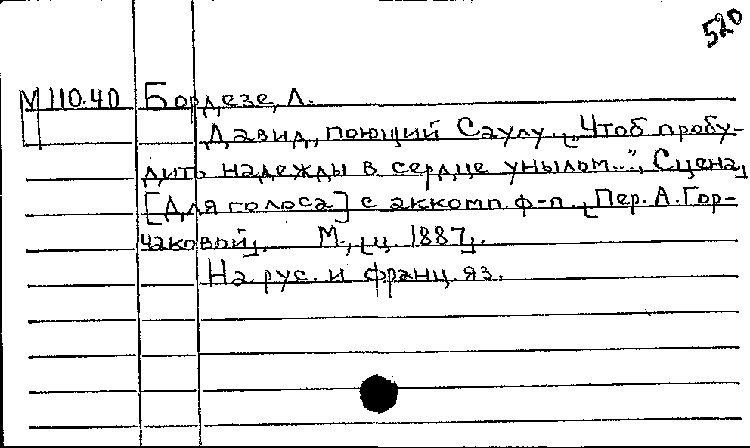 520
М 110.40 Бордезе, Л.
Давид, поющий Саулу. [„Чтоб пробу-
дить надежды в сердце унылом...", Сцена]
[Для голоса] с аккомп. ф-п. [Пер. А. Гор-
чаковой]. М., [ц. 1887].
На рус. и франц. яз.